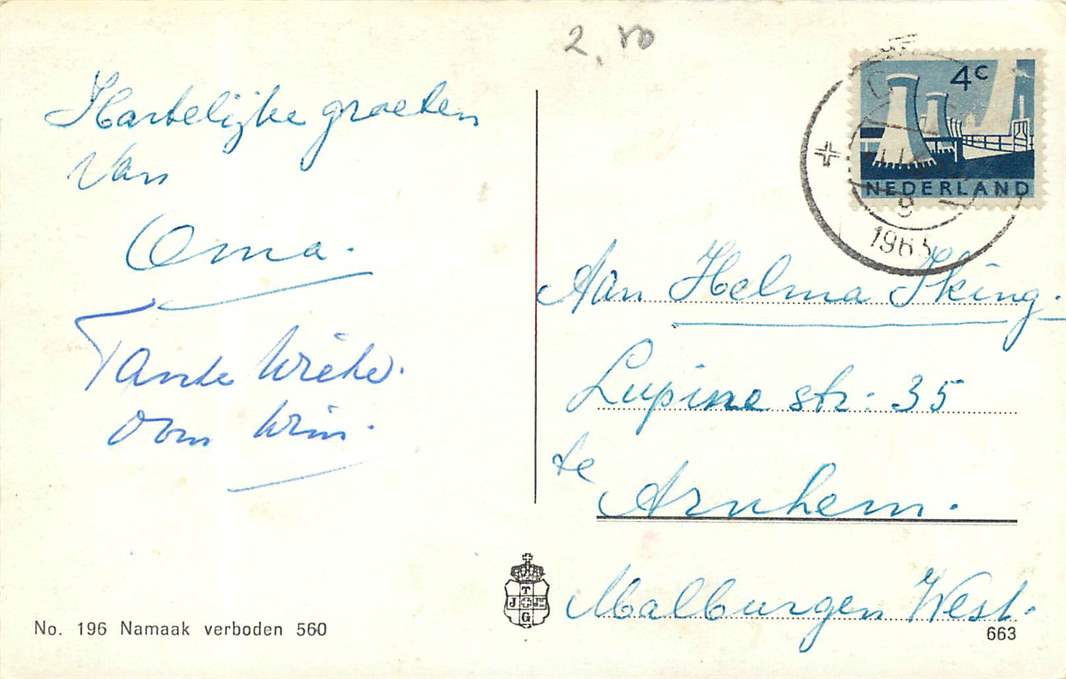 2,50
Hartelijke groeten
Van
Oma.
Tante Wieke.
Oom Wim.
4c
NEDERLAND
9
1963
Aan Helma Iking.
Lupine str: 35
te
Arnhem.
Malburgen West.
T
J
G
No. 196 Namaak verboden 560
663